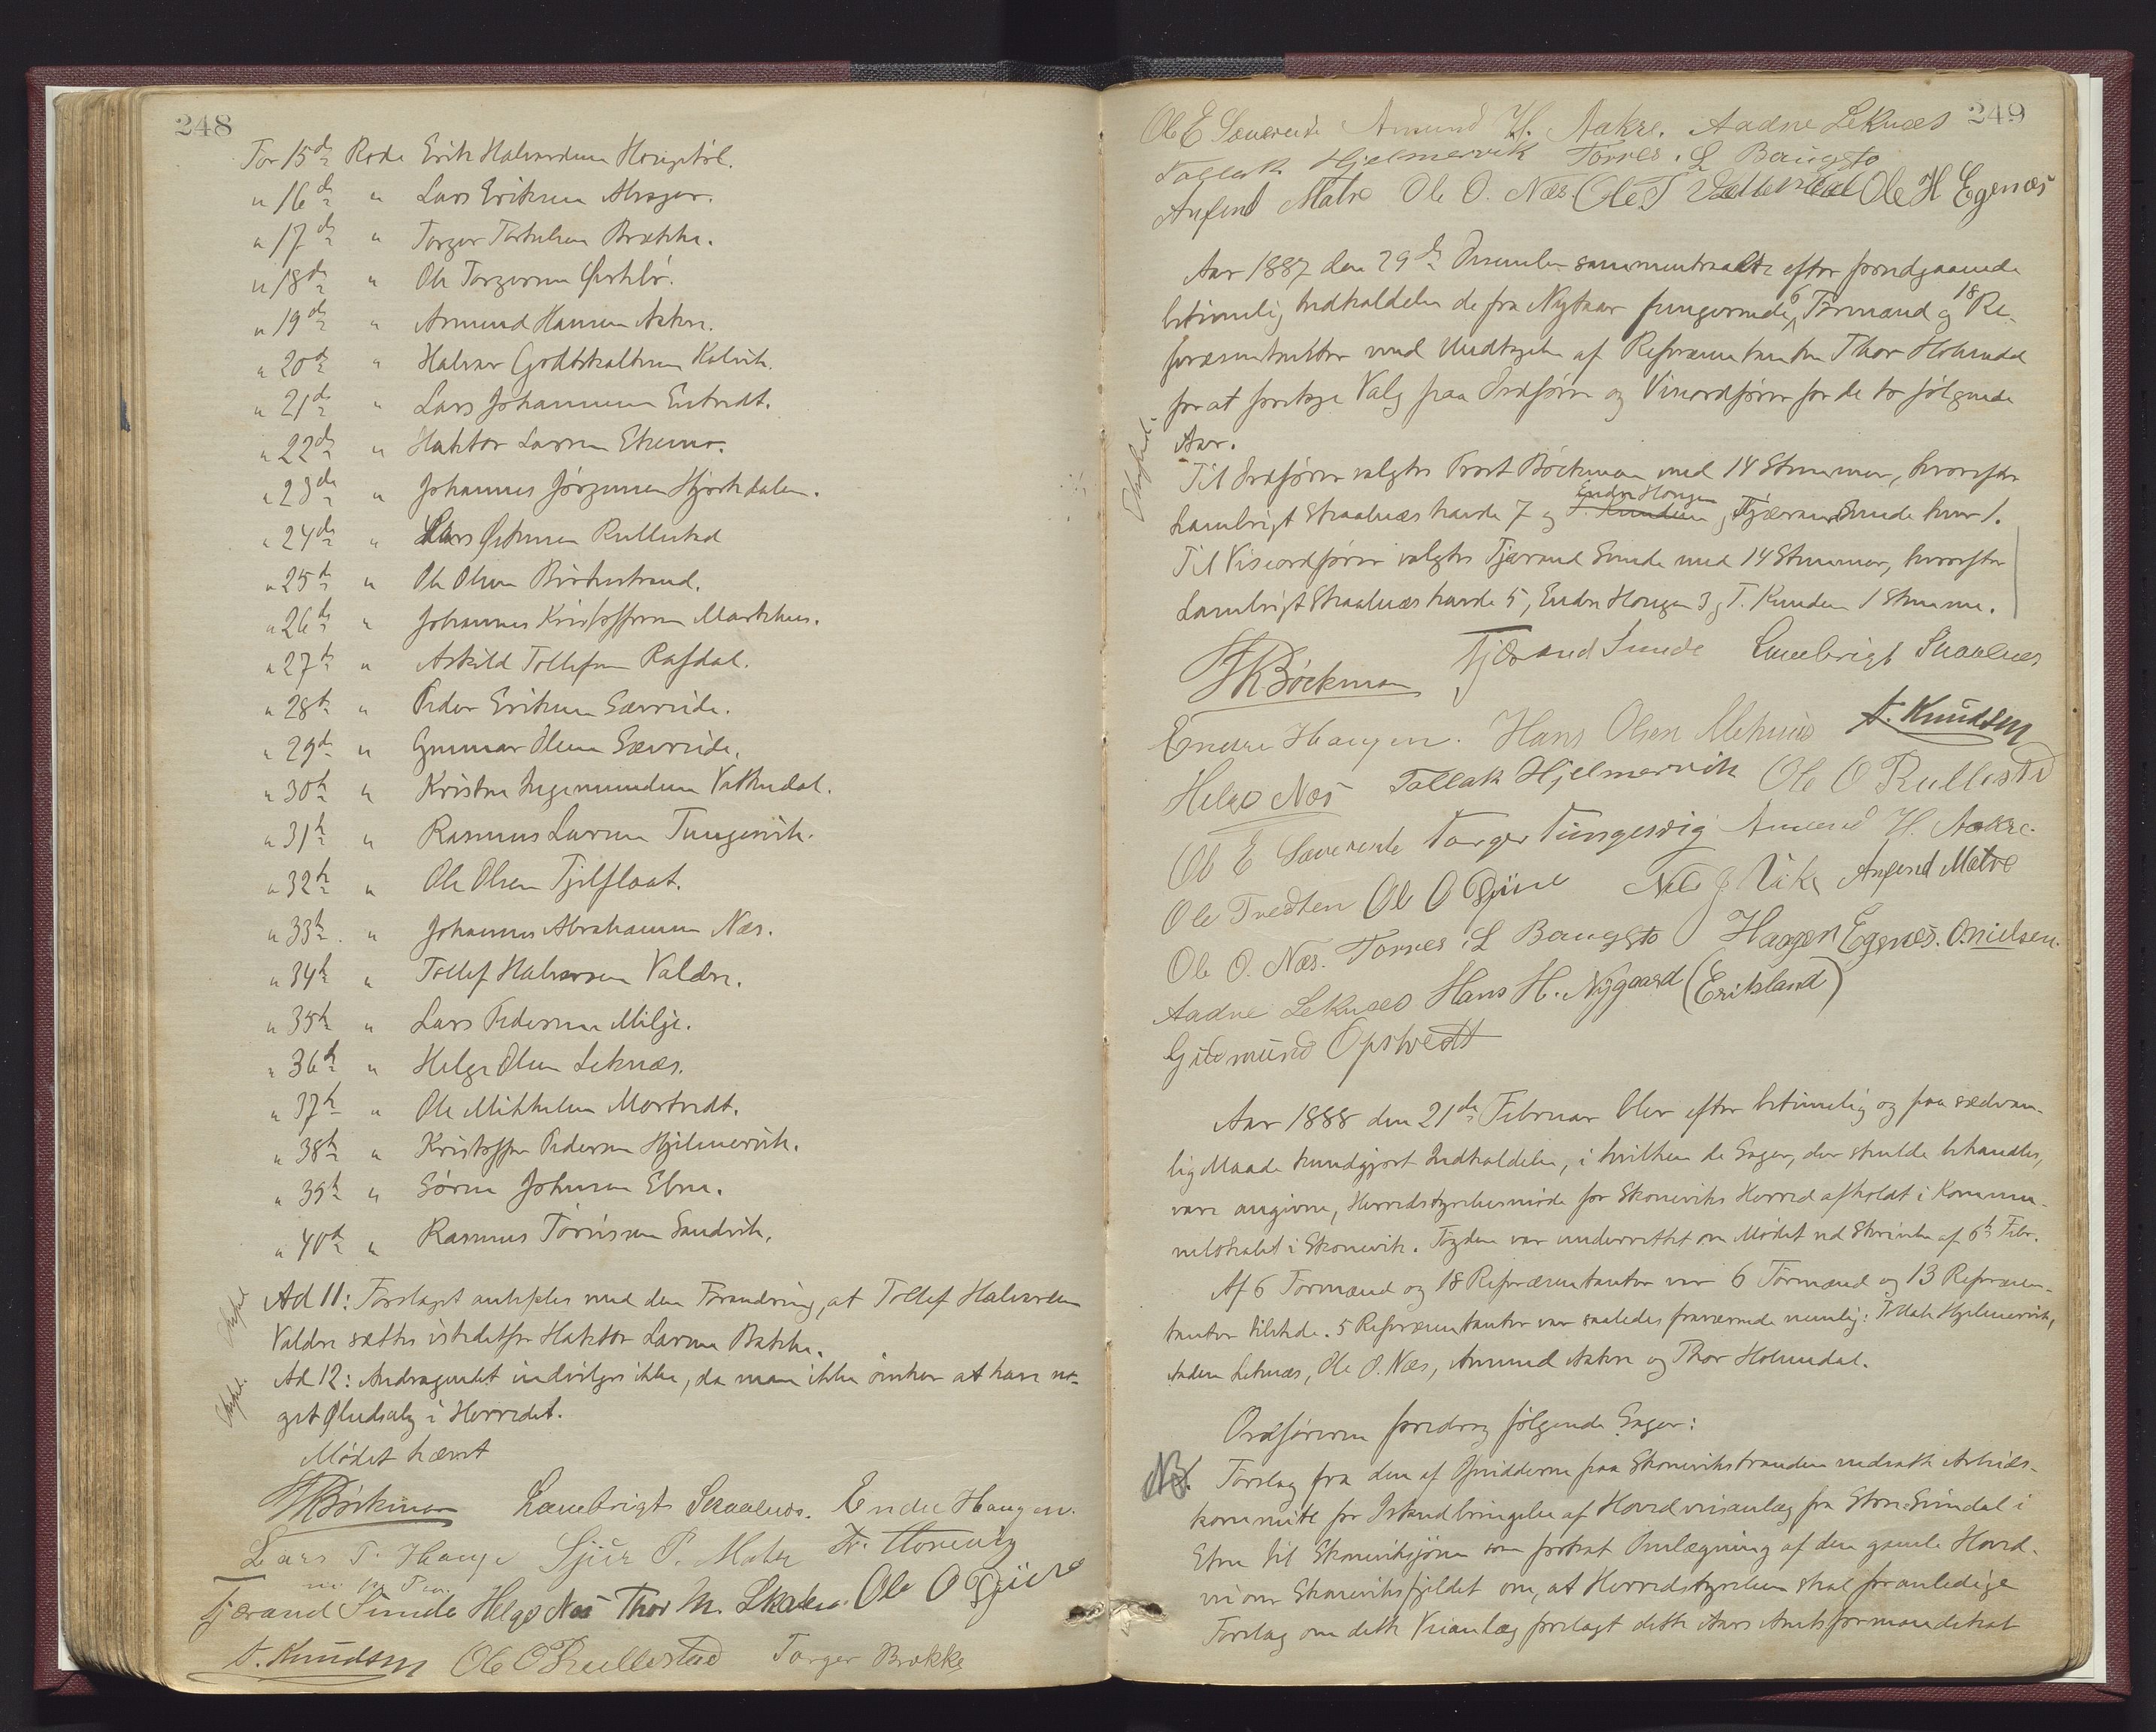 248
For 15de Rode Erik Halvorsen Hougstøl.
" 16de " Lars Eriksen Abrager.
" 17de " Torger Torkelsen Brække.
" 18de " Ole Torgersen Ørkhø.
" 19de " Amund Hansen Aakre.
" 20de " Halvor Godtskalksen Kalvik.
" 21de " Lars Johannesen Entvedt.
" 22de " Haktor Larsen Ekemo.
" 23de " Johannes Jørgensen Hjortedalen.
" 24de " Lars Østensen Rullestad
" 25de " Ole Olsen Birkestrand.
" 26de " Johannes Kristoffersen Markhus.
" 27de " Askild Tollefsen Rafdal.
" 28de " Peder Eriksen Sævereide.
" 29de " Gunnar Olsen Sævereide.
" 30te " Kristen Ingemundsen Vatnedal.
" 31te " Rasmus Larsen Tungesvik.
" 32te " Ole Olsen Fjelflaat.
" 33te " Johannes Abrahamsen Næs.
" 34te " Tollef Halvorsen Valdre.
" 35te " Lars Pedersen Milje.
" 36te " Helge Olsen Leknæs.
" 37te " Ole Mikkelsen Mortvedt.
" 38te " Kristoffer Pedersen Hjelmervik.
" 39te " Søren Johnsen Ebne.
" 40de " Rasmus Tørrisen Sandvik.
Ad 11: Forslaget antages med den Forandring, at Tollef Halvorsen
Valdre sættes istedetfor Haktor Larsen Bakke.
Ad 12: Andragendet indvilges ikke, da man ikke ønsker at have no-
get Øludsalg i Herredet.
Mødet hævet
Bøckman Lambrigt Skaalnæs. Endre Haugen.
Lars T. Hauge Sjur P. Matre
Tjærand Sunde Helge Næs Thor M. Ole O
T. Knudsen Ole O Rullestad Torger Brække
249
Ole E Sævereide Amund H. Aakre. Aadne Leknæs
Tallak Hjelmervik Torres L Baugsto
Anfind Matre Ole O. Næs Ole T Ole H Egenæs
Aar 1887 den 29de December sammentraadte efter forudgaaende
betimelig Indkaldelse de fra Nytaar fungerende 6 Formænd og 18 Re-
præsentanter med Undtagelse af Repræsentanten Thor Holmedal
for at foretage Valg paa Ordfører og Viceordfører for de to følgende
Aar.
Til Ordfører valgtes Provst Bøckman med 14 Stemmer, hvorefter
Lambrigt Skaalnæs havde 7 og T. Knudsen Endre Haugen, Tjærand Sunde hver 1.
Til Viseordfører valgtes Tjærand Sunde med 14 Stemmer, hvorefter
Lambrigt Skaalnæs havde 5, Endre Haugen 3, T. Knudsen 1 Stemme.
Bøckman Tjærand Sunde Lambrigt Skaalnes
Endre Haugen. Hans Olsen Mehus T. Knudsen
Helge Næs Tallak Hjelmervik Ole O Rullestad
Ole E Sævereide Torger Tungesvig Amund H. Aakre.
Ole Tvedten Ole O Nils J Anfind Matre
Ole O. Næs. Torres L Baugsto Haagen Egenæs. O. Nielsen.
Aadne Leknæs Hans H. Nygaard (Eriksland)
Gudmund Opstvedt
Aar 1888 den 21de Februar blev efter betimelig og paa sædvan-
lig Maade kundgjort Indkaldelse, i hvilken de Sager, der skulde behandles,
vare angivne, Herredsstyrelsesmøde for Skoneviks Herred afholdt i Kommu-
nelokalet i Skonevik. Fogden var underrettet om Mødet ved Skrivelse af 6te Febr.
Af 6 Formænd og 18 Repræsentanter var 6 Formænd og 13 Repræsen-
tanter tilstede. 5 Repræsentanter var saaledes fraværende nemlig: Tallak Hjelmervik,
Aadne Leknæs, Ole O. Næs, Amund Aakre og Thor Holmedal.
Ordføreren foredrog følgende Sager:
NB. Forslag fra den af Opsidderne paa Skonevikstranden nedsatte Arbeids-
kommite for Istandbringelse af Hovedveianlæg fra Store Sundal i
Etne til Skoneviksjøen som fortsat Omlægning af den gamle Hoved-
vei over Skoneviksfjeldet om, at Herredsstyrelsen skal foranledige
Forslag om dette Veianlæg forelagt dette Aars Amtsformandskab